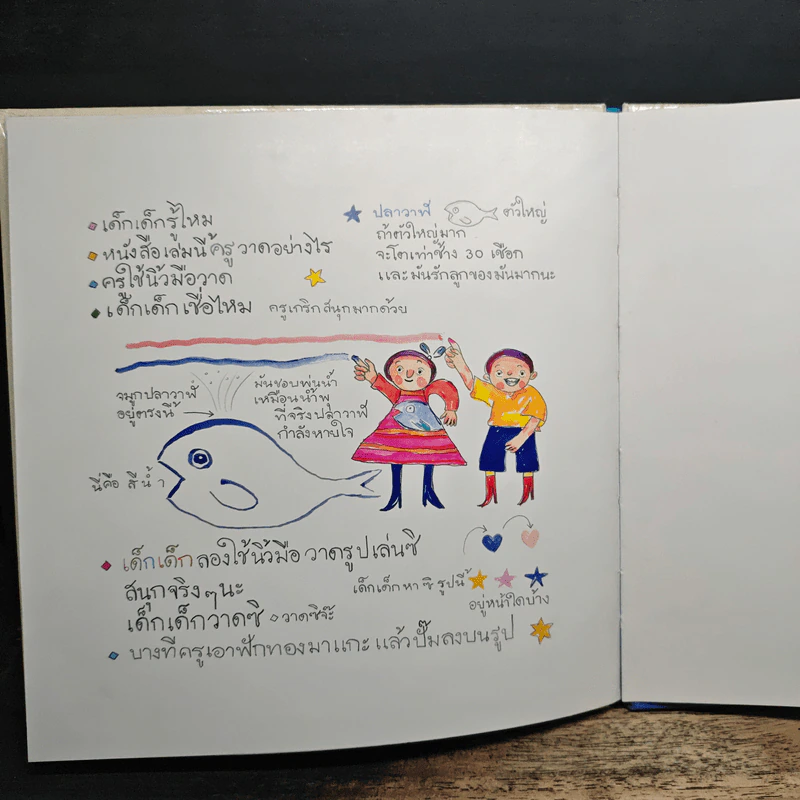 เด็กเด็กรู้ไหม
หนังสือเล่มนี้ครูวาดอย่างไร
ครูใช้นิ้วมือวาด
เด็กเด็กเชื่อไหม
ครูเกริกสนุกมากด้วย
ปลาวาฬ ตัวใหญ่
ถ้าตัวใหญ่มาก
จะโตเท่าช้าง 30 เชือก
และมันรักลูกของมันมากนะ
จมูกปลาวาฬ
อยู่ตรงนี้
มันชอบพ่นน้ำ
เหมือนน้ำพุ
ที่จริงปลาวาฬ
กำลังหายใจ
นี่คือ สีน้ำ
เด็กเด็กลองใช้นิ้วมือวาดรูปเล่นซิ
สนุกจริงๆนะ
เด็กเด็กวาดซิ
วาดซิจ๊ะ
เด็กเด็กหาซิรูปนี้
อยู่หน้าใดบ้าง
บางทีครูเอาฟักทองมาแกะ แล้วปั๊มลงบนรูป